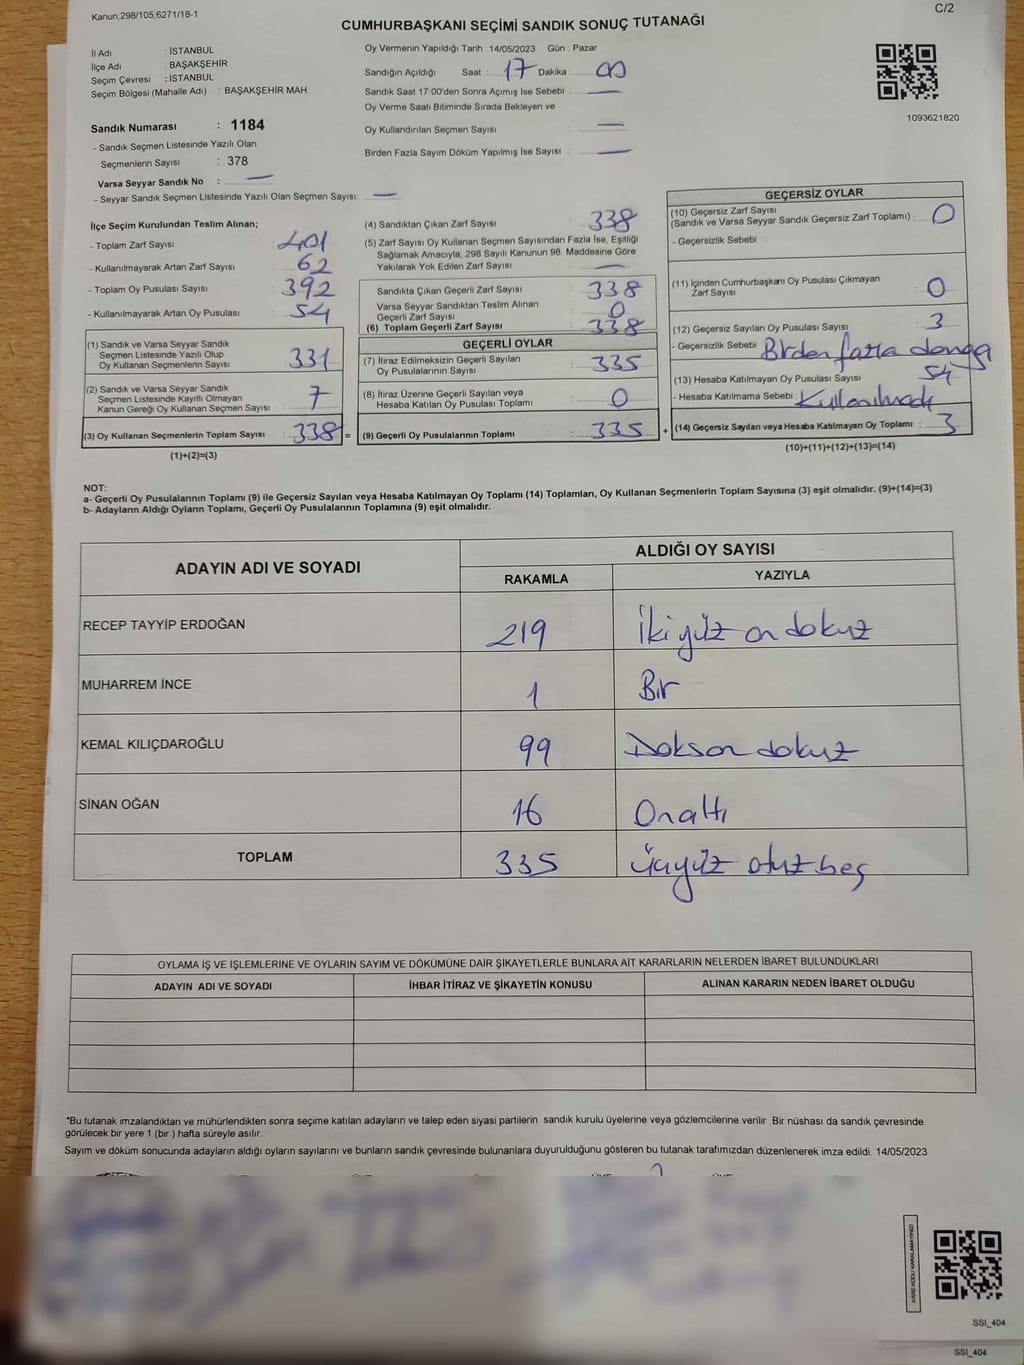 Kanun;298/105,6271/18-1
C/2
CUMHURBAŞKANI SEÇİMİ SANDIK SONUÇ TUTANAĞI
İl Adı : İSTANBUL
İlçe Adı : BAŞAKŞEHİR
Seçim Çevresi : İSTANBUL
Seçim Bölgesi (Mahalle Adı) : BAŞAKŞEHİR MAH.
Oy Vermenin Yapıldığı Tarih : 14/05/2023 Gün : Pazar
Sandığın Açıldığı Saat : 17 Dakika : 00
Sandık Saat 17.00'den Sonra Açımış İse Sebebi : —
Oy Verme Saati Bitiminde Sırada Bekleyen ve
Oy Kullandırılan Seçmen Sayısı : —
Birden Fazla Sayım Döküm Yapılmış İse Sayısı : —
1093621820
Sandık Numarası : 1184
- Sandık Seçmen Listesinde Yazılı Olan
Seçmenlerin Sayısı : 378
Varsa Seyyar Sandık No : —
- Seyyar Sandık Seçmen Listesinde Yazılı Olan Seçmen Sayısı: —
İlçe Seçim Kurulundan Teslim Alınan;
- Toplam Zarf Sayısı : 401
- Kullanılmayarak Artan Zarf Sayısı : 62
- Toplam Oy Pusulası Sayısı : 392
- Kullanılmayarak Artan Oy Pusulası : 54
(1) Sandık ve Varsa Seyyar Sandık
Seçmen Listesinde Yazılı Olup
Oy Kullanan Seçmenlerin Sayısı : 331
(2) Sandık ve Varsa Seyyar Sandık
Seçmen Listesinde Kayıtlı Olmayan
Kanun Gereği Oy Kullanan Seçmen Sayısı : 7
(3) Oy Kullanan Seçmenlerin Toplam Sayısı : 338 =
(1)+(2)=(3)
(4) Sandıktan Çıkan Zarf Sayısı : 338
(5) Zarf Sayısı Oy Kullanan Seçmen Sayısından Fazla İse, Eşitliği
Sağlamak Amacıyla, 298 Sayılı Kanunun 98. Maddesine Göre
Yakılarak Yok Edilen Zarf Sayısı : —
Sandıkta Çıkan Geçerli Zarf Sayısı : 338
Varsa Seyyar Sandıktan Teslim Alınan
Geçerli Zarf Sayısı : 0
(6) Toplam Geçerli Zarf Sayısı : 338
GEÇERLİ OYLAR
(7) İtiraz Edilmeksizin Geçerli Sayılan
Oy Pusulalarının Sayısı : 335
(8) İtiraz Üzerine Geçerli Sayılan veya
Hesaba Katılan Oy Pusulaları Toplamı : 0
(9) Geçerli Oy Pusulalarının Toplamı : 335 +
GEÇERSİZ OYLAR
(10) Geçersiz Zarf Sayısı
(Sandık ve Varsa Seyyar Sandık Geçersiz Zarf Toplamı) : 0
- Geçersizlik Sebebi :
(11) İçinden Cumhurbaşkanı Oy Pusulası Çıkmayan
Zarf Sayısı : 0
(12) Geçersiz Sayılan Oy Pusulası Sayısı : 3
- Geçersizlik Sebebi : Birden fazla damga
(13) Hesaba Katılmayan Oy Pusulası Sayısı : 54
- Hesaba Katılmama Sebebi : Kullanılmadı
(14) Geçersiz Sayılan veya Hesaba Katılmayan Oy Toplamı : 3
(10)+(11)+(12)+(13)=(14)
NOT:
a- Geçerli Oy Pusulalarının Toplamı (9) ile Geçersiz Sayılan veya Hesaba Katılmayan Oy Toplamı (14) Toplamları, Oy Kullanan Seçmenlerin Toplam Sayısına (3) eşit olmalıdır. (9)+(14)=(3)
b- Adayların Aldığı Oyların Toplamı, Geçerli Oy Pusulalarının Toplamına (9) eşit olmalıdır.
ADAYIN ADI VE SOYADI
ALDIĞI OY SAYISI
RAKAMLA YAZIYLA
RECEP TAYYİP ERDOĞAN 219 İki yüz on dokuz
MUHARREM İNCE 1 Bir
KEMAL KILIÇDAROĞLU 99 Doksan dokuz
SİNAN OĞAN 16 Onaltı
TOPLAM 335 Üçyüz otuz beş
OYLAMA İŞ VE İŞLEMLERİNE VE OYLARIN SAYIM VE DÖKÜMÜNE DAİR ŞİKAYETLERLE BUNLARA AİT KARARLARIN NELERDEN İBARET BULUNDUKLARI
ADAYIN ADI VE SOYADI İHBAR İTİRAZ VE ŞİKAYETİN KONUSU ALINAN KARARIN NEDEN İBARET OLDUĞU
*Bu tutanak imzalandıktan ve mühürlendikten sonra seçime katılan adayların ve talep eden siyasi partilerin sandık kurulu üyelerine veya gözlemcilerine verilir. Bir nüshası da sandık çevresinde
görülecek bir yere 1 (bir ) hafta süreyle asılır.
Sayım ve döküm sonucunda adayların aldığı oyların sayılarını ve bunların sandık çevresinde bulunanlara duyurulduğunu gösteren bu tutanak tarafımızdan düzenlenerek imza edildi. 14/05/2023
KARE KODU KARALAMAYINIZ!
SSI_404
SSI_404